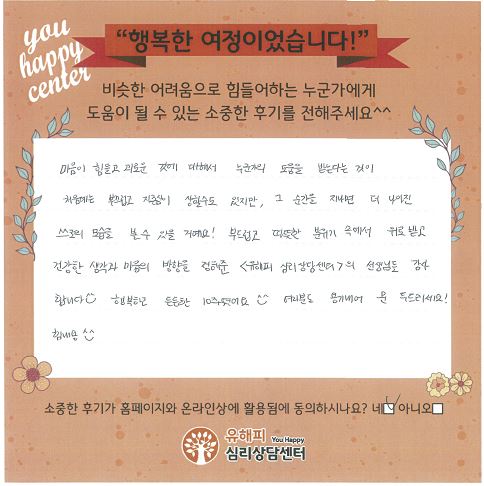 you
happy
center
“행복한 여정이었습니다!”
비슷한 어려움으로 힘들어하는 누군가에게
도움이 될 수 있는 소중한 후기를 전해주세요^^
마음이 힘들고 괴로운 것에 대해서 누군가의 도움을 받는다는 것이
처음에는 부끄럽고 자존심이 상할수도 있지만, 그 순간을 지나면 더 나아진
스스로의 모습을 볼 수 있을 거예요! 부드럽고 따뜻한 분위기 속에서 위로 받고
건강한 생각과 마음의 방향을 전해준 <유해피 심리상담센터>의 선생님들 감사
합니다 행복하고 든든한 10주였어요 ^^ 여러분도 용기내어 문 두드리세요!
힘내용 ^^
소중한 후기가 홈페이지와 온라인상에 활용됨에 동의하시나요? 네 아니오
유해피 You Happy
심리상담센터